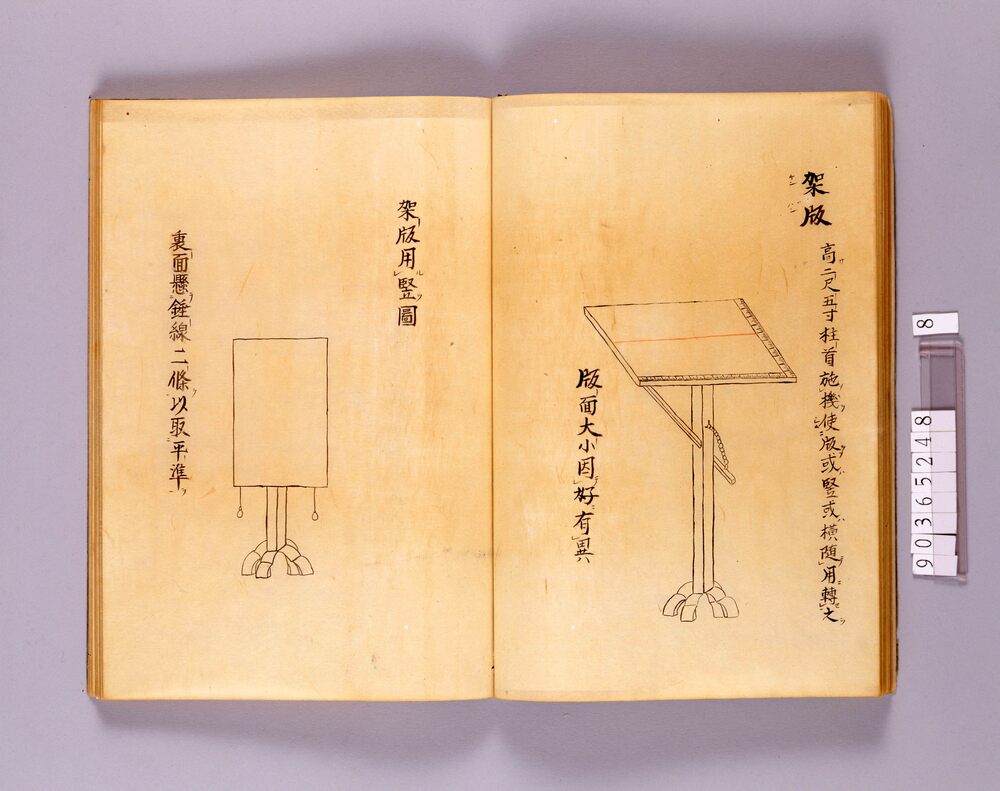 架版
ケンバン
高二尺五寸柱首施機使版或竪或横随用轉之
版面大小因好有異
架版用竪圖
裏面懸錘線二條以取平準
8
90365248